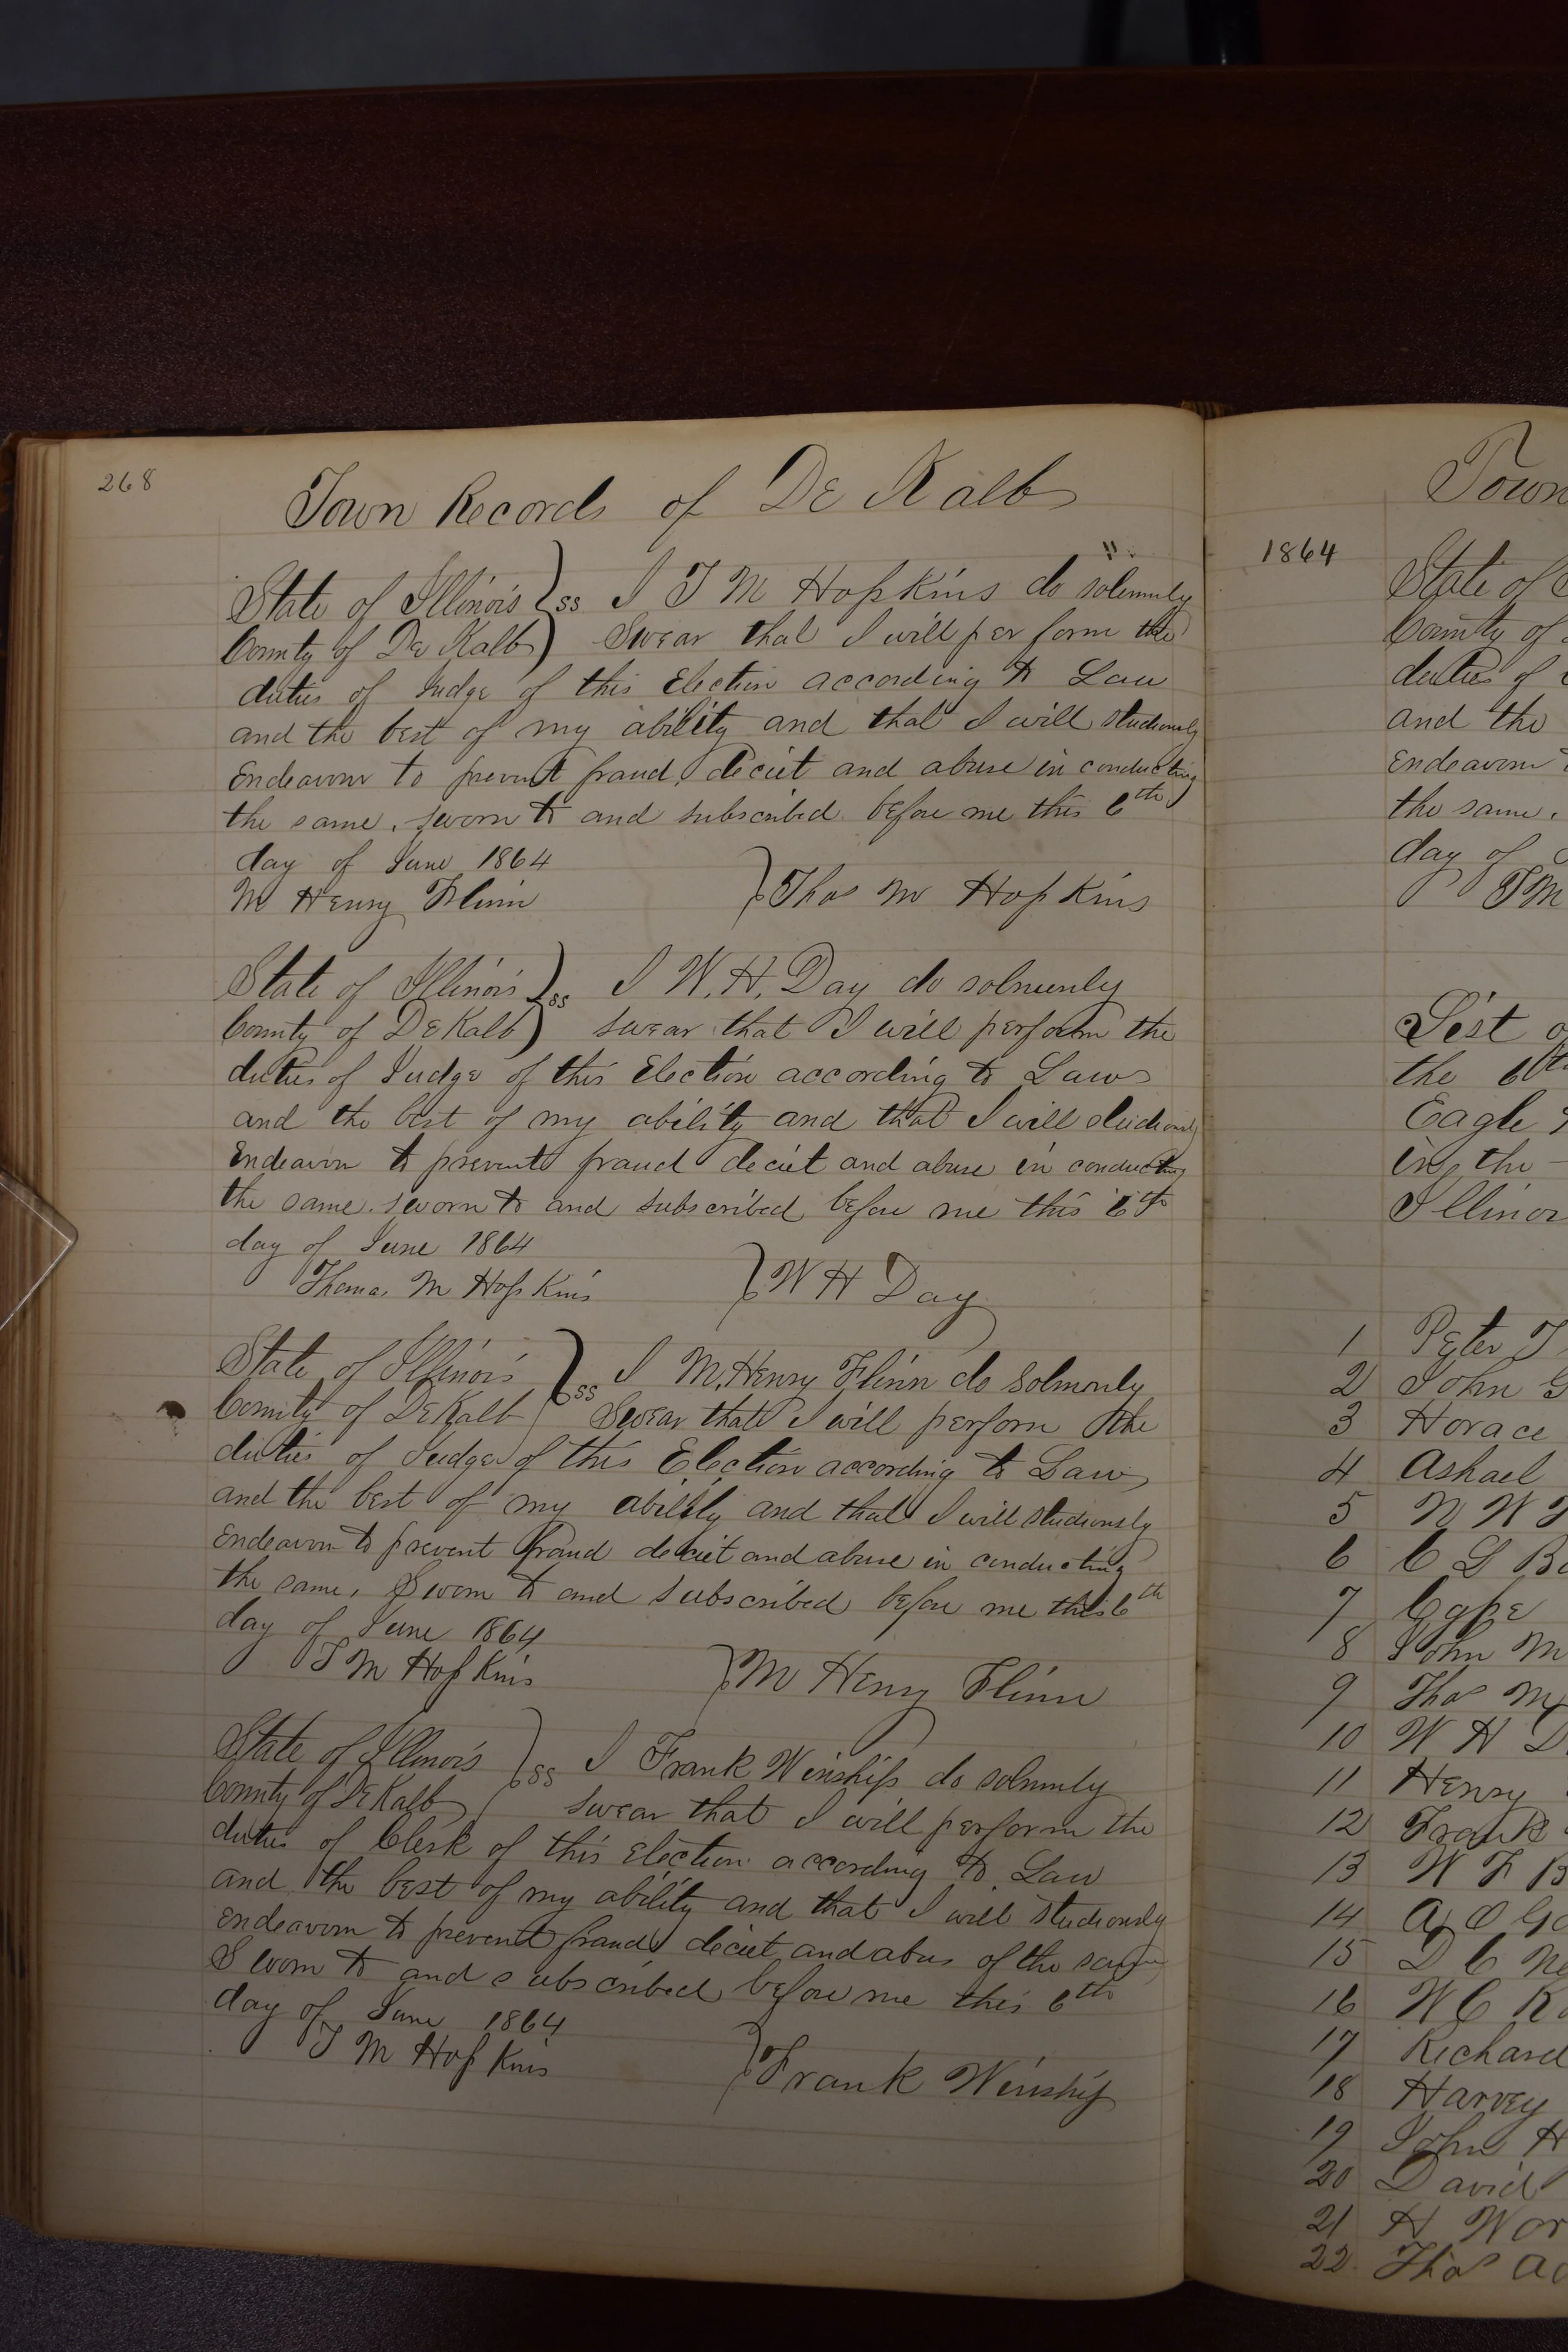 268
Town Records of De Kalb
State of Illinois } ss I T M Hopkins do solemnly
County of De Kalb } Swear that I will per form the
duties of Judge of this Election according to Law
and the best of my ability and that I will studiously
Endeavour to prevent fraud, deceit and abuse in conducting
the same. sworn to and subscribed before me this 6th
day of June 1864
M Henry Flinn } Thos M Hopkins
State of Illinois } ss I W. H. Day do solmenly
County of DeKalb } swear that I will perform the
duties of Judge of this Election according to Law
and the best of my ability and that I will studiously
Endeavor to prevent fraud deceit and abuse in conducting
the same. sworn to and subscribed before me this 6th
day of June 1864
Thomas M Hopkins } W H Day
State of Illinois } ss I M. Henry Flinn do Solmonly
County of DeKalb } Swear that I will perform the
duties of Judge of this Election according to Law
and the best of my ability and that I will studiously
Endeavor to prevent fraud deceit and abuse in conducting
the same. Sworn to and subscribed before me this 6th
day of June 1864
T M Hopkins } M Henry Flinn
State of Illinois } ss I Frank Winship do solmnly
County of DeKalb } swear that I will perform the
duties of Clerk of this Election according to Law
and the best of my ability and that I will studiously
endeavor to prevent fraud deceit and abus of the same
Sworn to and subscribed before me this 6th
day of June 1864
T M Hopkins } Frank Winship
Town
1864
State of
County of
duties of
and the
Endeavour
the same.
day of
T M
List
the 6th
Eagle
in the
Illinoi
1 Peter T
2 John G
3 Horace
4 Ashael
5 N W
6 C G B
7 Cape
8 John M
9 Thos M
10 W H D
11 Henry
12 Frank
13 W F B
14 A O G
15 D C N
16 W C R
17 Richard
18 Harvey
19 John H
20 David
21 H Wor
22. Thos Ad